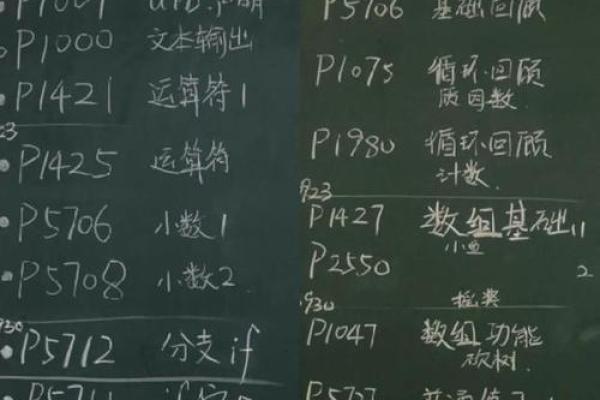 P1000 文本输出
P1421 运算符1
23
P1425 运算符
P5706 小数1
P5708 小数2
930
P5712 分支if
P5706 基础回顾
P1075 循环回顾
质因数
P1980 循环回顾
计数
923
P1427 数组基础 1
小鱼
P2550 2
摇奖
930
P1047 数组功能
砍树